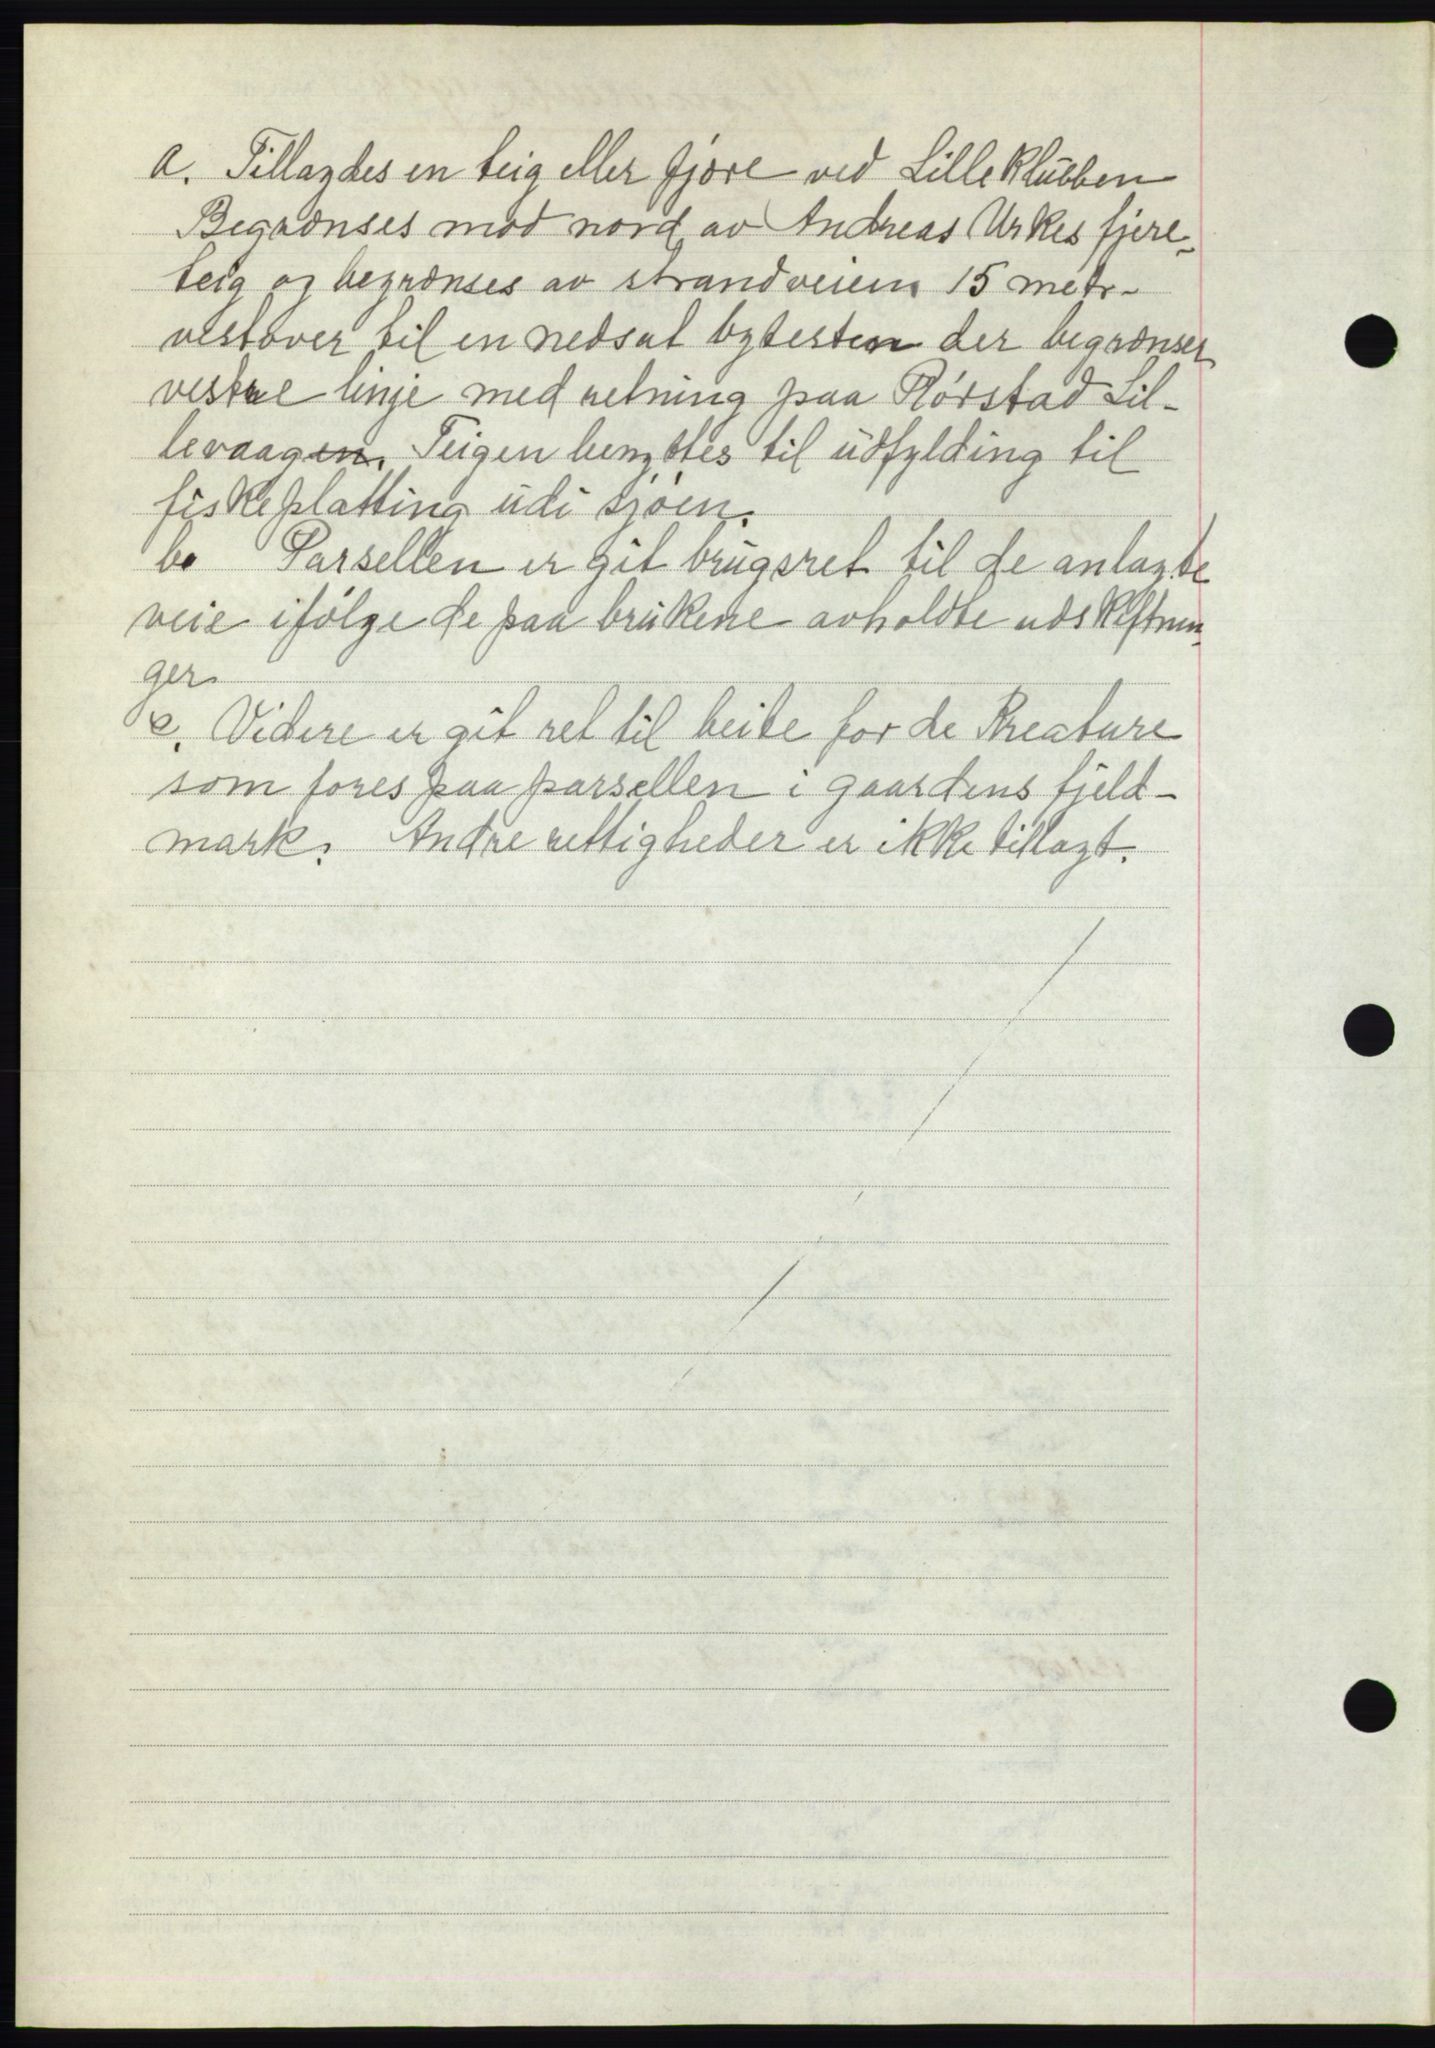 a. Tillagdes en teig eller fjøre ved Lille Klubben
Begrænses mod nord av Andreas Urkes fjere-
teig og begrænses av strandveien 15 metr-
vestover til en nedsat bytesten der begrænser
vestre linje med retning paa Rørstad Lil-
levaagen. Teigen benyttes til udfylding til
fiskeplatting udi sjøen.
b. Parsellen er git brugsret til de anlagte
veie ifølge de paa brukene avholdte udskiftnin-
ger
c. Videre er git ret til beite for de Kreature
som fores paa parsellen i gaardens fjeld-
mark. Andre rettigheder er ikke tillagt.